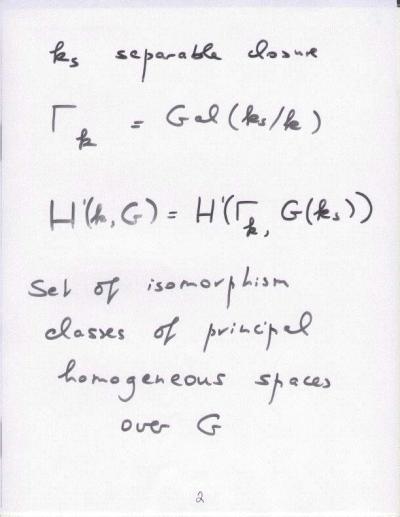 ks separable closure
Γk = Gal(ks/k)
H¹(k, G) = H¹(Γk, G(ks))
Set of isomorphism
classes of principal
homogeneous spaces
over G
2